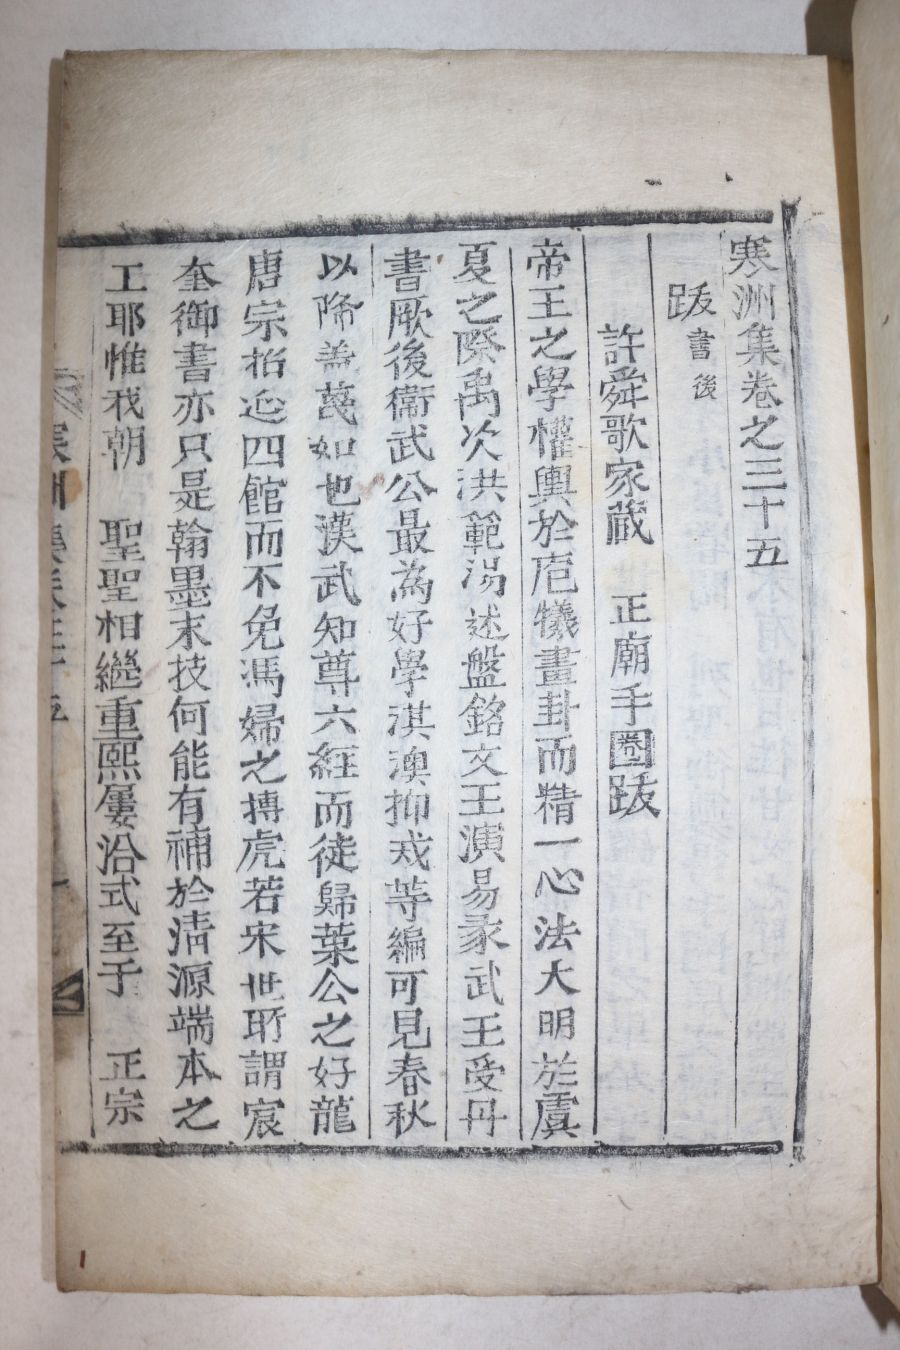 寒洲集卷之三十五
跋書後
許舜歌家藏 正廟手圈跋
帝王之學權輿於庖犧畫卦而精一心法大明於虞
夏之際禹次洪範湯述盤銘文王演易彖武王受丹
書厥後衛武公最為好學淇澳抑戎等編可見春秋
以降盖蔑如也漢武知尊六經而徒歸葉公之好龍
唐宗招延四館而不免馮婦之搏虎若宋世所謂宸
奎御書亦只是翰墨末技何能有補於淸源端本之
工耶惟我朝 聖聖相繼重熙屢洽式至于 正宗